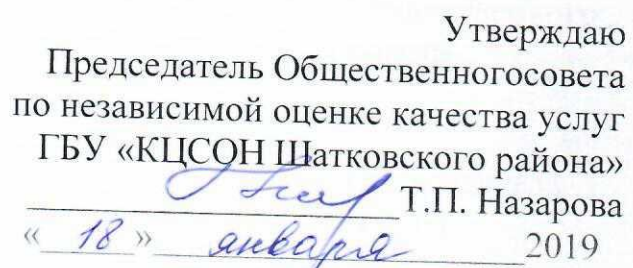 Утверждаю
Председатель Общественногосовета
по независимой оценке качества услуг
ГБУ «КЦСОН Шатковского района»
Т.П. Назарова
« 18 » января 2019